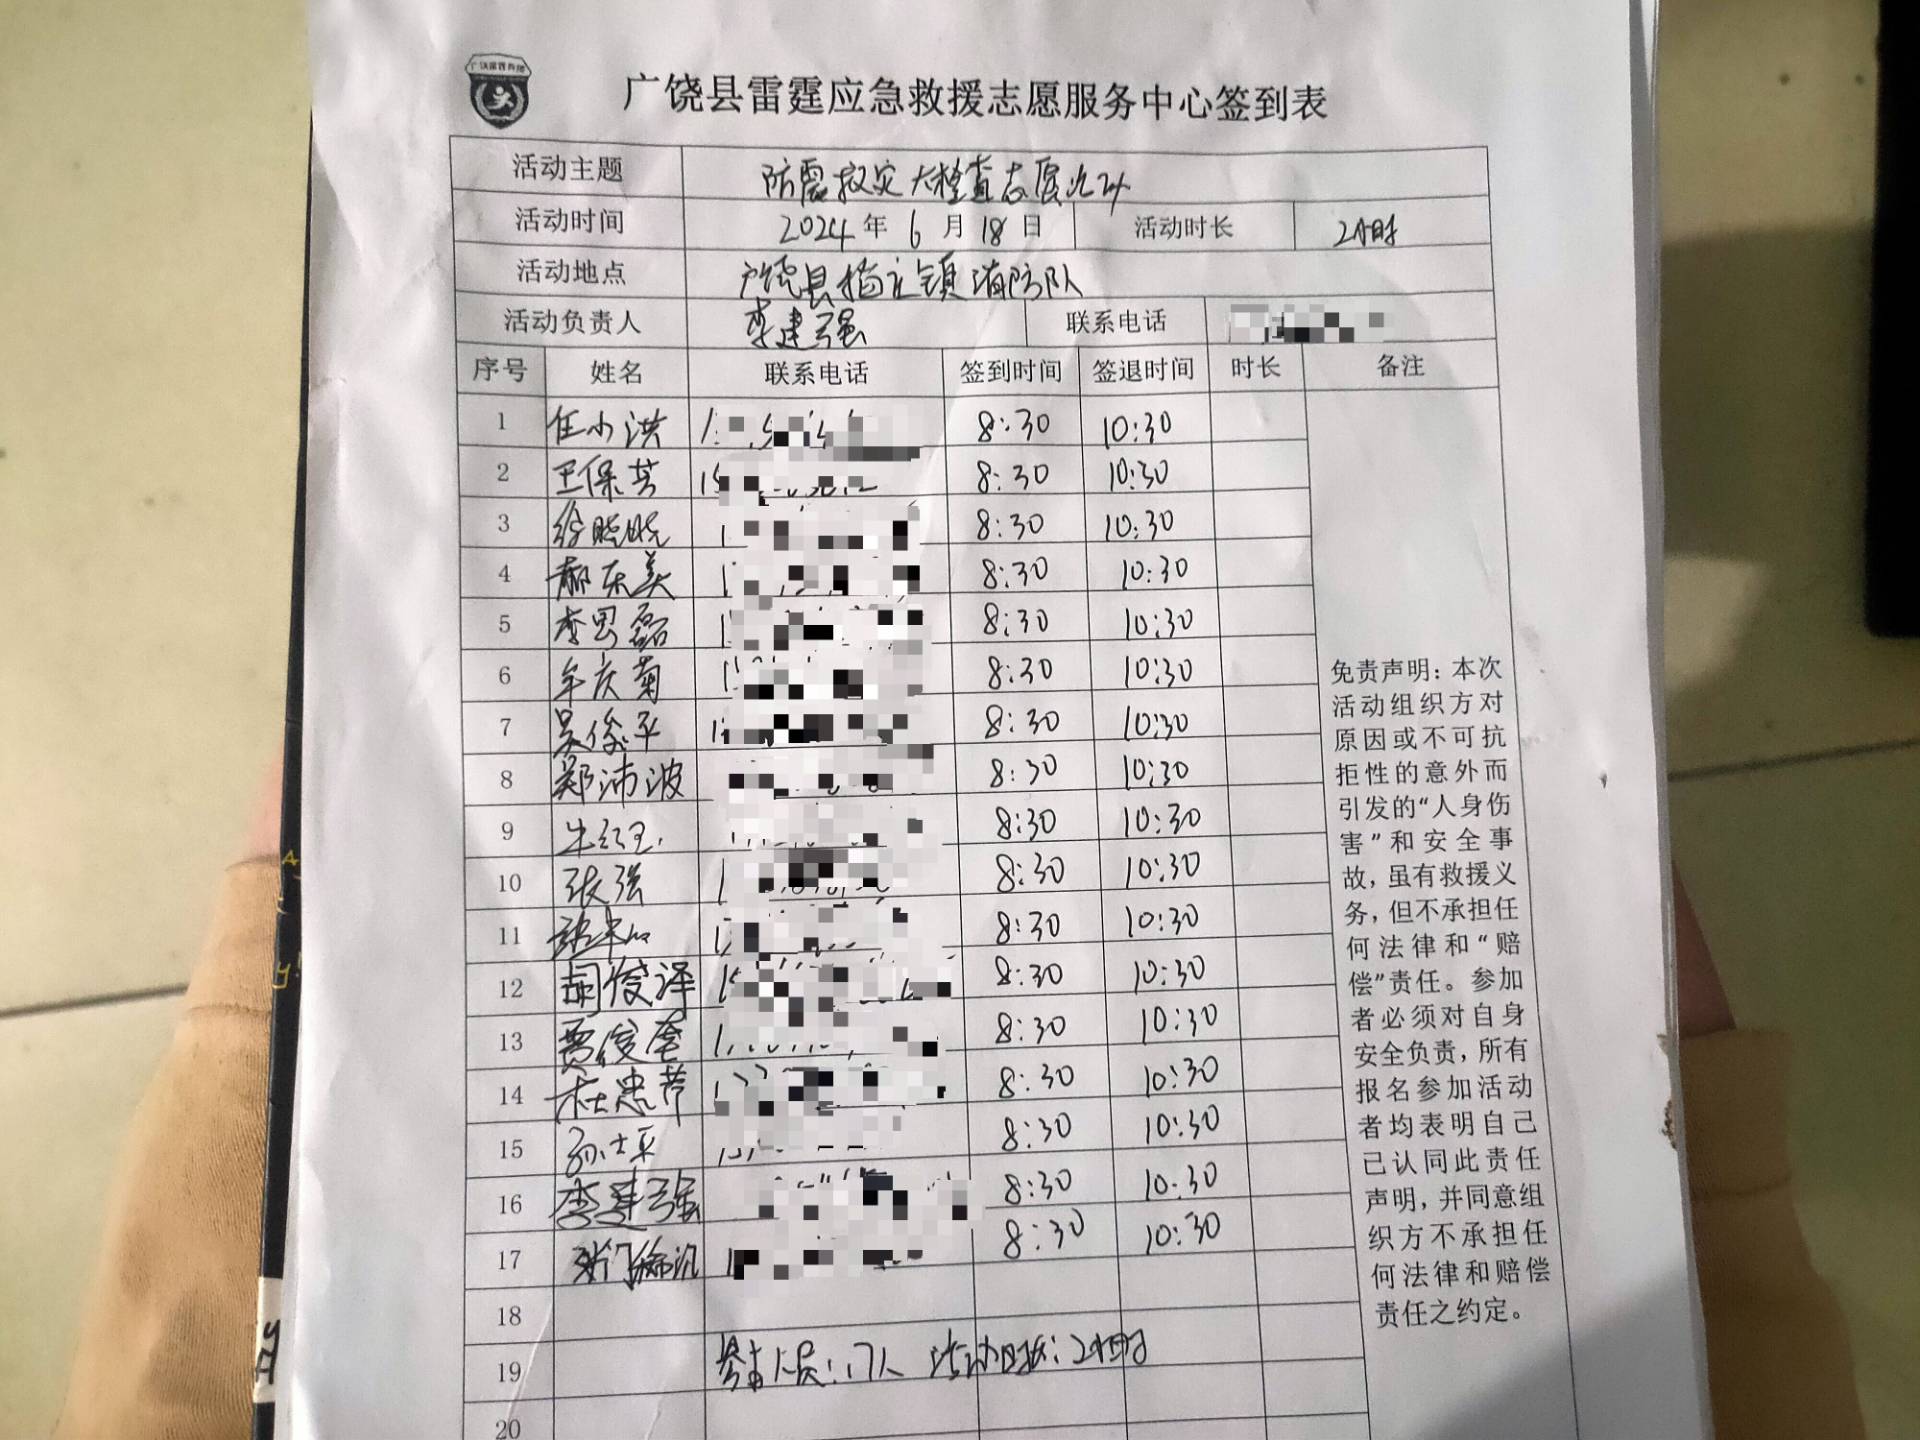 广饶县雷霆应急救援志愿服务中心签到表
活动主题 防震救灾大检查志愿
活动时间 2024年6月18日 活动时长 2小时
活动地点 广饶县 镇消防队
活动负责人 李建强 联系电话
序号 姓名 联系电话 签到时间 签退时间 时长 备注
1 任小洪 8:30 10:30
2 王保芳 8:30 10:30
3 徐晓晓 8:30 10:30
4 郝东美 8:30 10:30
5 李男磊 8:30 10:30
6 牟庆菊 8:30 10:30
7 吴俊平 8:30 10:30
8 郑沛波 8:30 10:30
9 8:30 10:30
10 张强 8:30 10:30
11 8:30 10:30
12 胡俊泽 8:30 10:30
13 贾俊奎 8:30 10:30
14 杜忠芹 8:30 10:30
15 8:30 10:30
16 李建强 8:30 10:30
17 8:30 10:30
18
19 参加人员:17人 活动时长:2小时
20
免责声明:本次
活动组织方对
原因或不可抗
拒性的意外而
引发的“人身伤
害”和安全事
故,虽有救援义
务,但不承担任
何法律和“赔
偿”责任。参加
者必须对自身
安全负责,所有
报名参加活动
者均表明自己
已认同此责任
声明,并同意组
织方不承担任
何法律和赔偿
责任之约定。